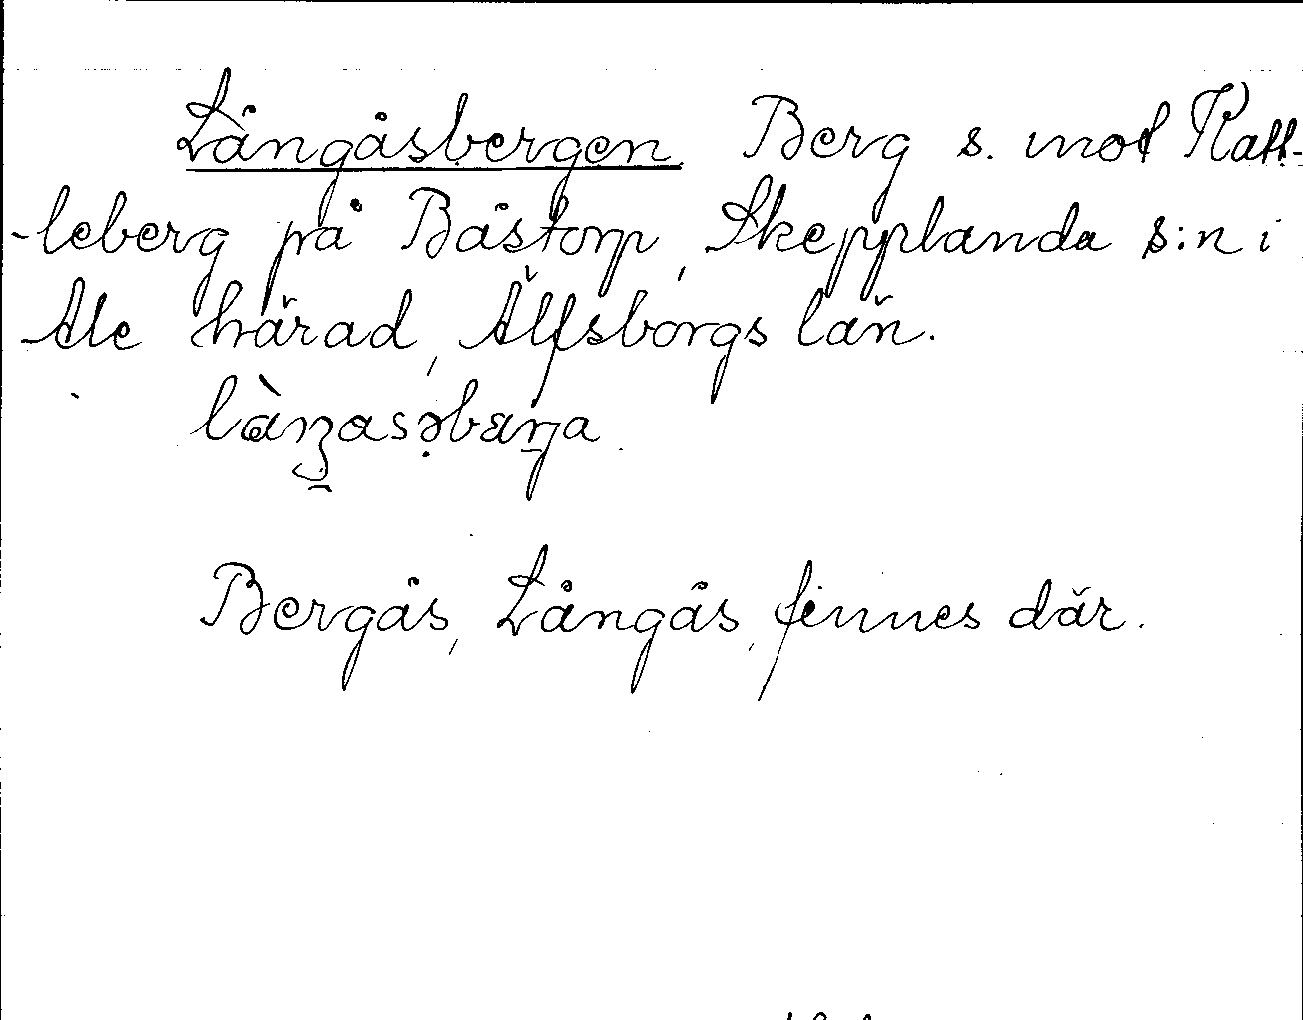 Långåsbergen. Berg s. mot Katt-
-leberg på Båstorp, Skepplanda s:n i
Ale härad, Älfsborgs län.
Bergås, Långås, finnes där.